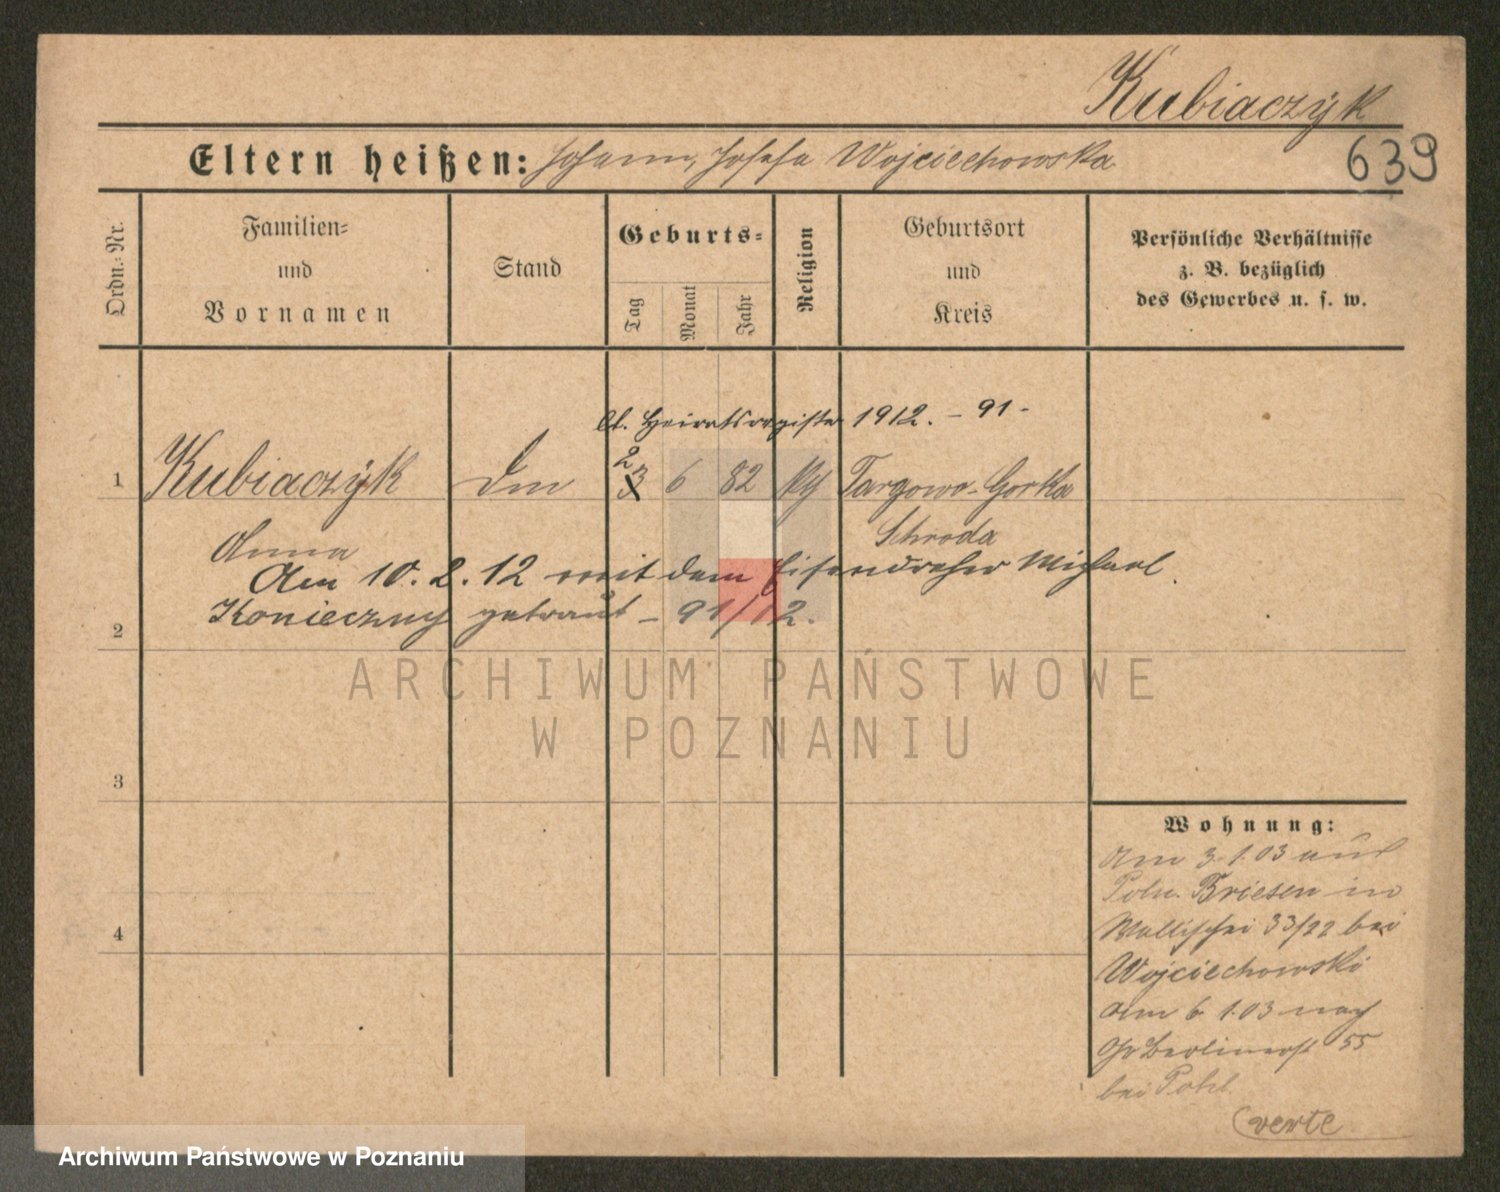 Kubiaczÿk
Eltern heißen: Johann, Josefa Wojciechowska
639
Ordn.-Nr.
Familien-
und
Vornamen
Stand
Geburts-
Tag
Monat
Jahr
Religion
Geburtsort
und
Kreis
Persönliche Verhältnisse
z. B. bezüglich
des Gewerbes u. s. w.
lt. Heiratsregister 1912. – 91 –
2
1 Kubiaczÿk 3 6 82 Targowo-Gorka
Anna Schroda
Am 10.2.12 mit dem Eisendreher Michael
Konieczny getraut – 91/12.
2
3
4
Wohnung:
Am 3.1.03 aus
Poln. Briesen in
Wallischei 33/22 bei
Wojciechowski
Am 6.1.03 nach
Gr Berlinerst 55
bei Pohl.
(verte
ARCHIWUM PAŃSTWOWE
W POZNANIU
Archiwum Państwowe w Poznaniu